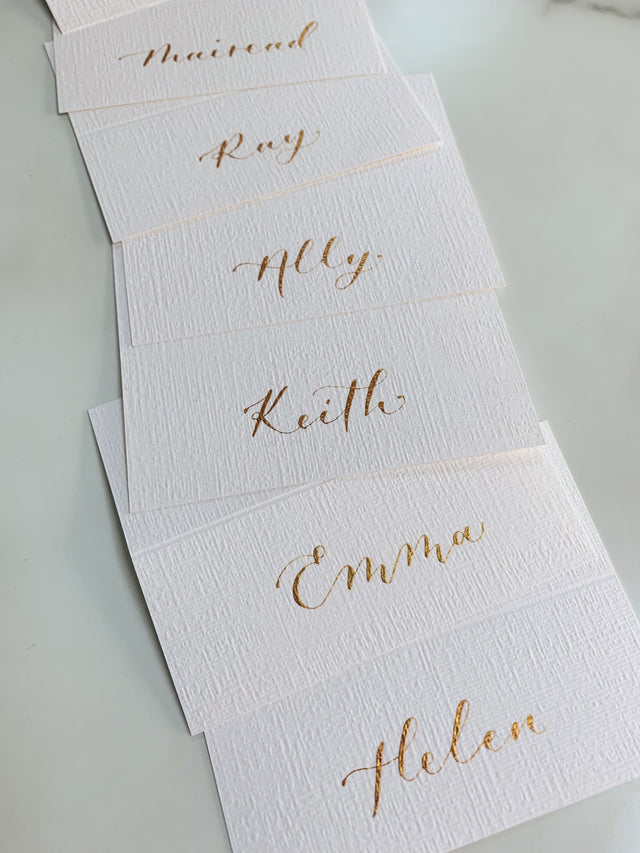 Mairead
Ray
Ally.
Keith
Emma
Helen